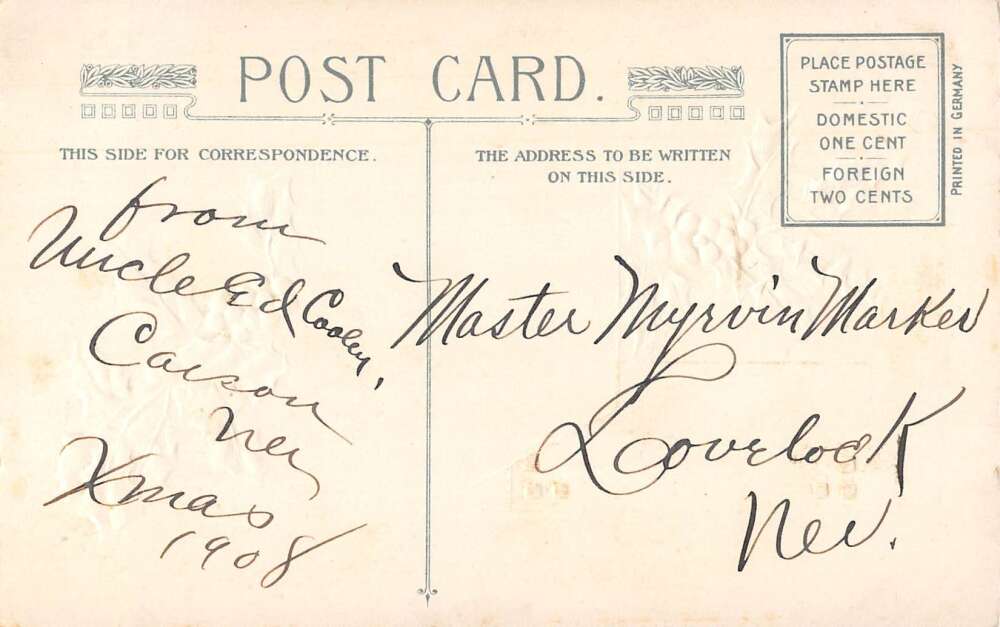 POST CARD.
THIS SIDE FOR CORRESPONDENCE.
THE ADDRESS TO BE WRITTEN
ON THIS SIDE.
PLACE POSTAGE
STAMP HERE
DOMESTIC
ONE CENT
FOREIGN
TWO CENTS
PRINTED IN GERMANY
from
Uncle Ed Cooley,
Carson
Nev
Xmas
1908
Master Myrvin Marker
Lovelock
Nev.